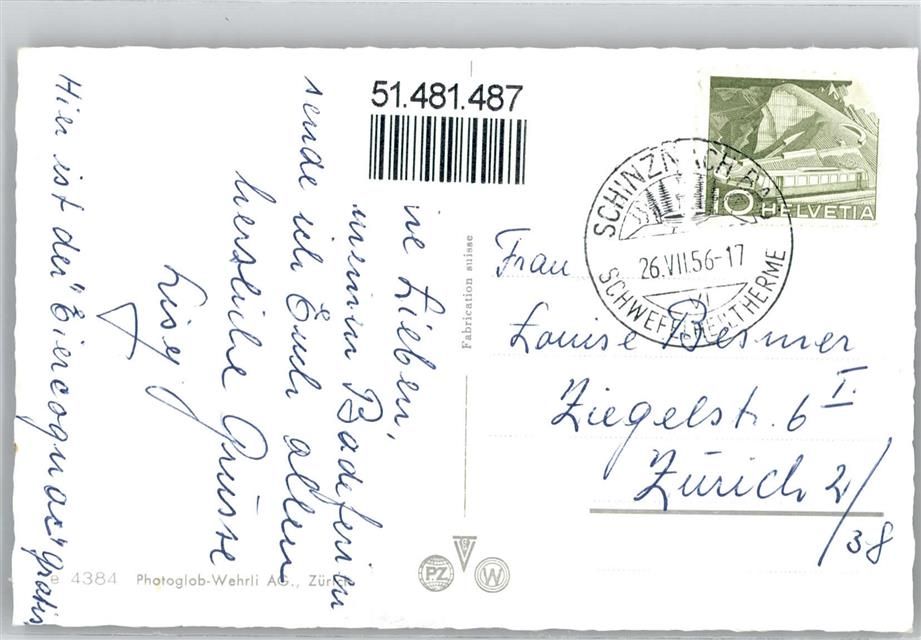 51.481.487
ine Lieben,
meinen Badeferien
sende ich Euch allen
herzliche Grüsse
Lisy
Hier ist der "Eiercognac" gratis.
Fabrication suisse
10 HELVETIA
SCHINZNACH BAD
26.VII.56-17
SCHWEFELHEILTHERME
Frau
Louise Desmer
Ziegelstr. 6 I.
Zürich 2/38
e 4384 Photoglob-Wehrli AG., Zürich
PZ
W